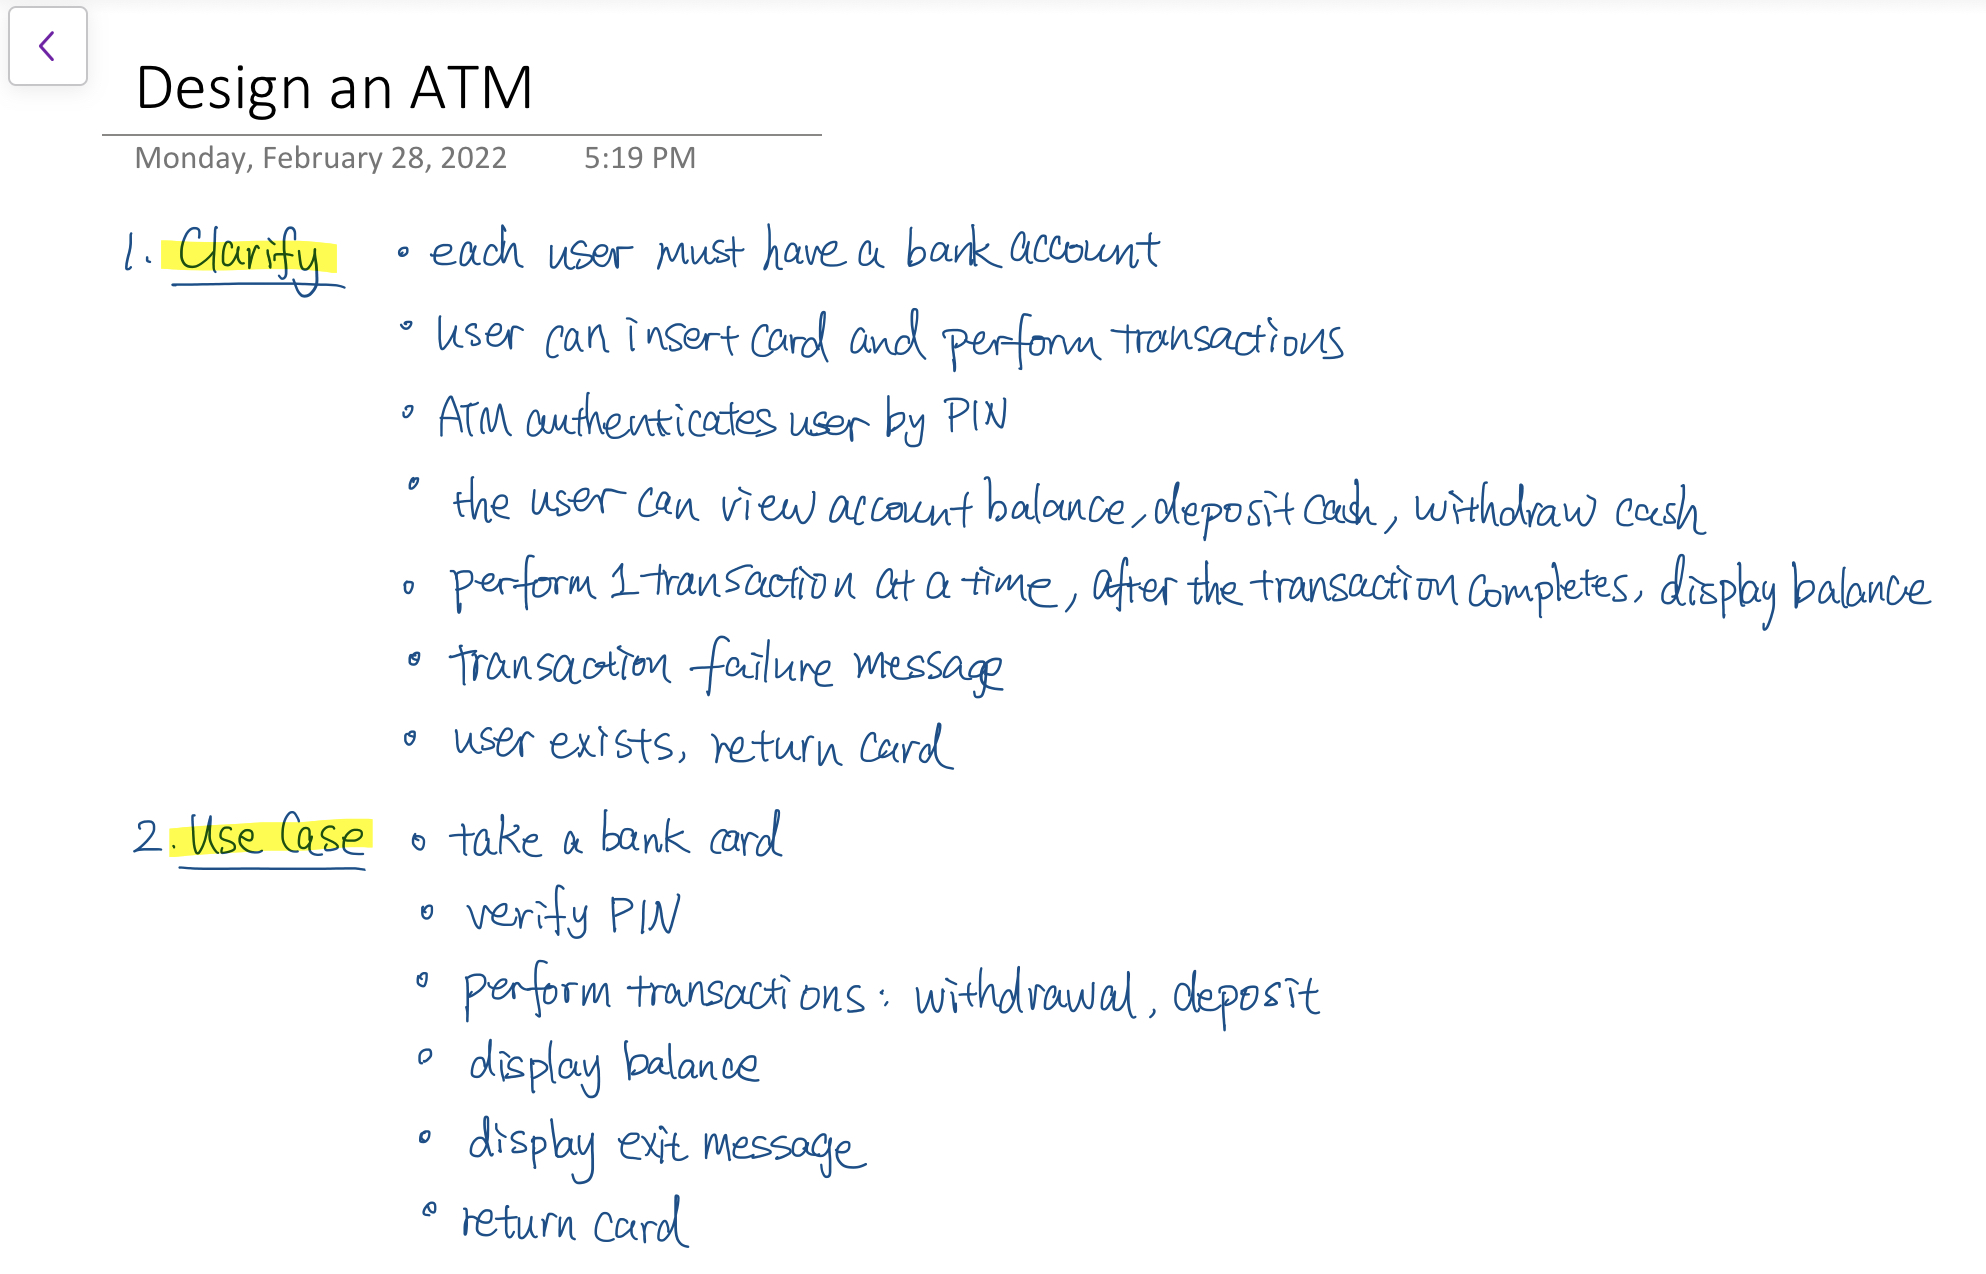 Design an ATM
Monday, February 28, 2022 5:19 PM
1. Clarify
• each user must have a bank account
• user can insert card and perform transactions
• ATM authenticates user by PIN
• the user can view account balance, deposit cash, withdraw cash
• perform 1 transaction at a time, after the transaction completes, display balance
• transaction failure message
• user exists, return card
2. Use Case
• take a bank card
• verify PIN
• perform transactions: withdrawal, deposit
• display balance
• display exit message
• return card